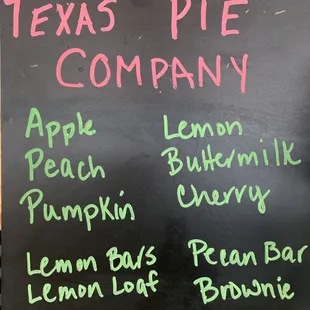 TEXAS PIE
COMPANY
Apple
Peach
Pumpkin
Lemon
Buttermilk
Cherry
Lemon Bars
Lemon Loaf
Pecan Bar
Brownie